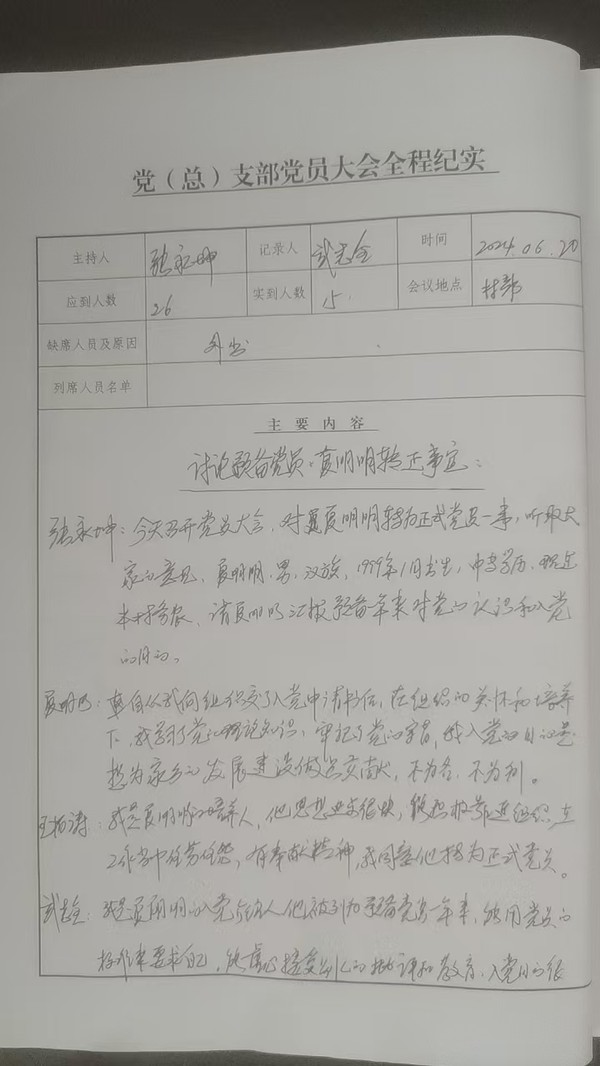 党（总）支部党员大会全程纪实
主持人 张永坤 记录人 武志全 时间 2024.06.20
应到人数 26 实到人数 15 会议地点 村部
缺席人员及原因 外出
列席人员名单
主要内容
讨论预备党员：夏明明转正事宜：
张永坤：今天召开党员大会，对夏明明转为正式党员一事，听取大
家的意见，夏明明，男，汉族，1999年1月出生，中专学历，现在
本村务农，请夏明明汇报预备一年来对党的认识和入党
的目的。
夏明明：自从我向组织交了入党申请书后，在组织的关怀和培养
下，我学习了党的理论知识，牢记了党的宗旨，我入党的目的是
想为家乡的发展建设做出贡献，不为名、不为利。
王杨涛：我是夏明明的培养人，他思想进步很快，能积极靠近组织，在
工作当中任劳任怨，有奉献精神，我同意他转为正式党员。
武志全：我是夏明明的入党介绍人，他被列为预备党员一年来，能用党员的
标准来要求自己，能虚心接受别人的批评和教育，入党目的很